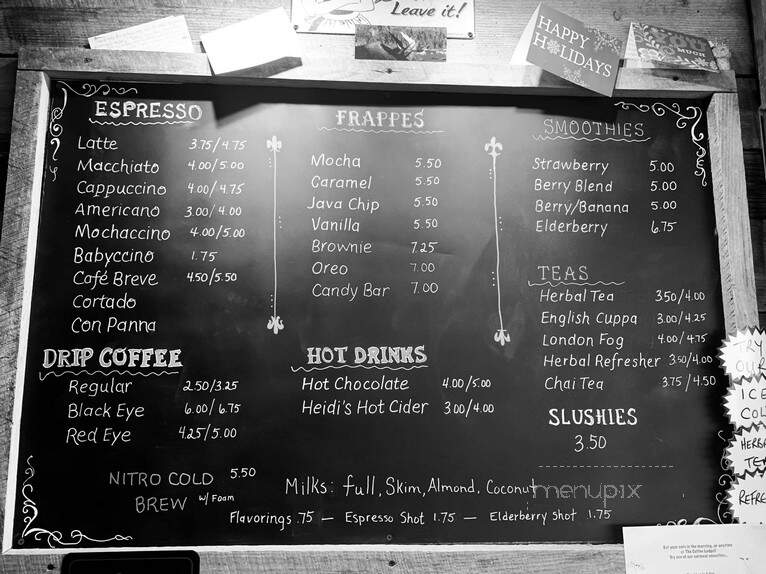 Leave it!
HAPPY
HOLIDAYS
MOON
ESPRESSO
Latte 3.75/4.75
Macchiato 4.00/5.00
Cappuccino 4.00/4.75
Americano 3.00/4.00
Mochaccino 4.00/5.00
Babyccino 1.75
Café Breve 4.50/5.50
Cortado
Con Panna
DRIP COFFEE
Regular 2.50/3.25
Black Eye 6.00/6.75
Red Eye 4.25/5.00
NITRO COLD 5.50
BREW w/ Foam
FRAPPES
Mocha 5.50
Caramel 5.50
Java Chip 5.50
Vanilla 5.50
Brownie 7.25
Oreo 7.00
Candy Bar 7.00
HOT DRINKS
Hot Chocolate 4.00/5.00
Heidi's Hot Cider 3.00/4.00
SMOOTHIES
Strawberry 5.00
Berry Blend 5.00
Berry/Banana 5.00
Elderberry 6.75
TEAS
Herbal Tea 3.50/4.00
English Cuppa 3.00/4.25
London Fog 4.00/4.75
Herbal Refresher 3.50/4.00
Chai Tea 3.75/4.50
SLUSHIES
3.50
Milks: full, Skim, Almond, Coconut
Flavorings .75 — Espresso Shot 1.75 — Elderberry Shot 1.75
menupix
TRY
OUR
ICE
COL
HERBA
TE
REFRE